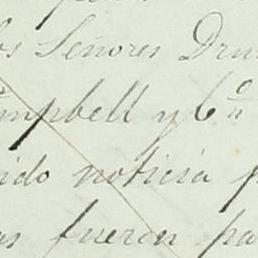 los Señores Dru
ampbell y Cª
ido noticia p
as fueron pa